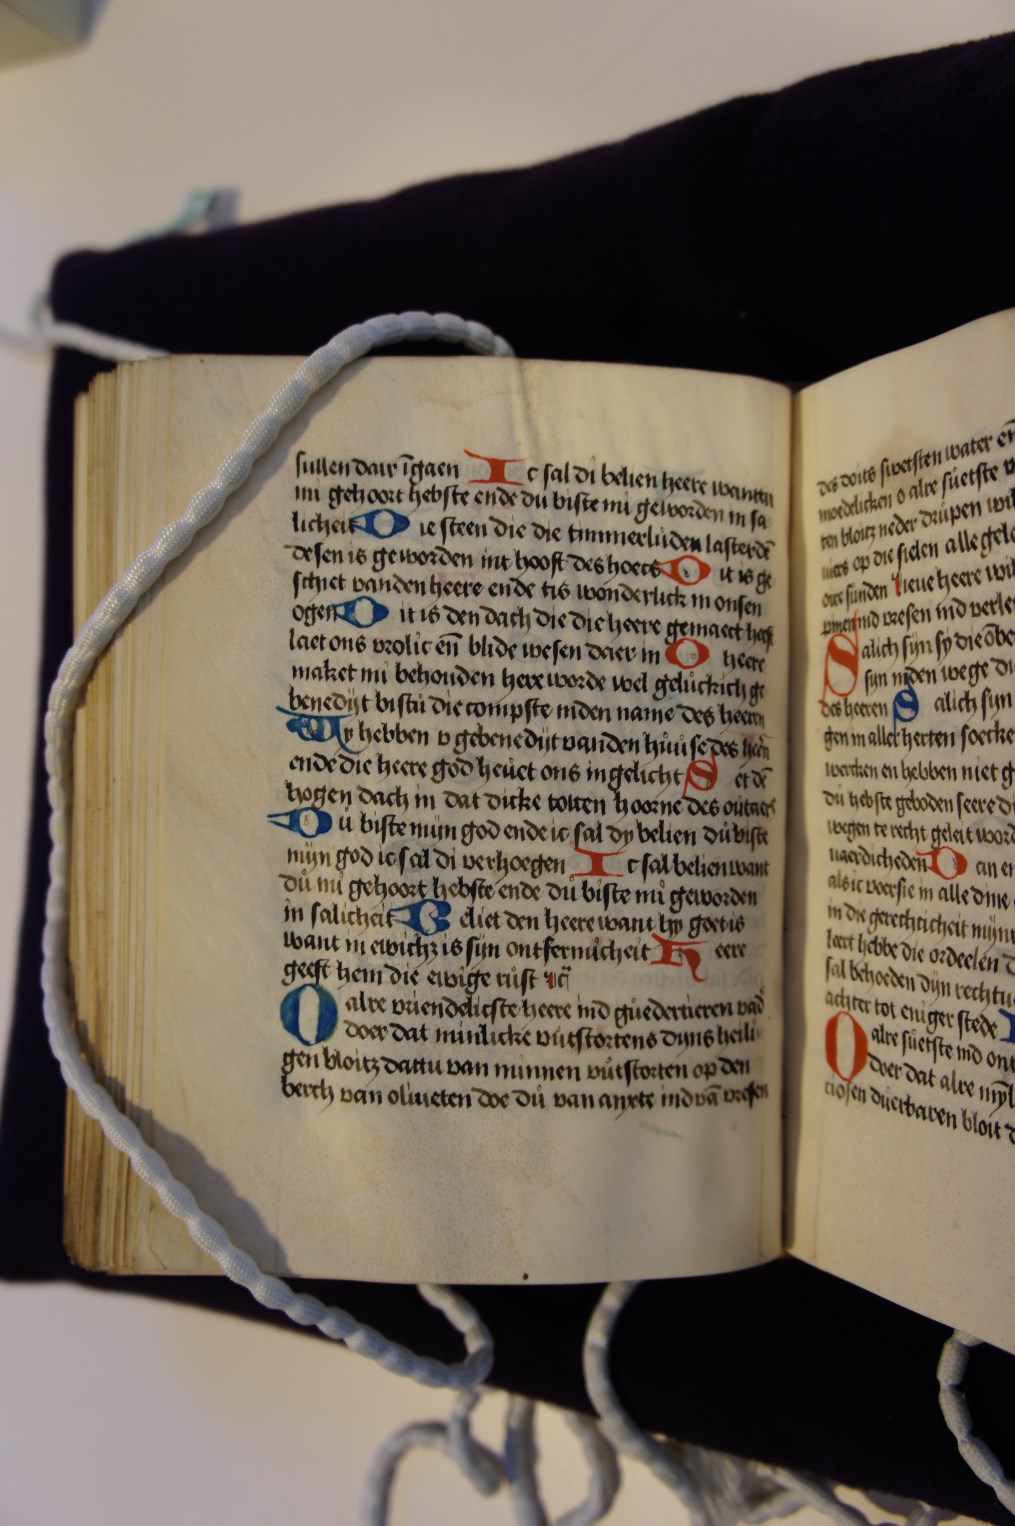 sullen dair īgaen Ic sal di belien heere wanttu
mi gehoort hebste ende du biste mi geworden in sa
licheit Die steen die die timmerluden lasterdē
desen is geworden int hooft des hoecs Dit is ge
schiet vanden heere ende tis wonderlick in onsen
ogen Dit is den dach die die heere gemaect heeft
laet ons vrolic eñ blide wesen daer in O heere
maket mi behouden here worde wel geluckich ge
benedijt bistu die compste inden name des heeren
Wy hebben v gebenedijt vanden huuse des heren
ende die heere god heuet ons ingelicht Set dē
hogen dach in dat dicke totten hoorne des outaers
Du biste mijn god ende ic sal dy belien du biste
mijn god ic sal di verhoegen Ic sal belien want
du mi gehoort hebste ende du biste mi geworden
in salicheit Beliet den heere want hy goet is
want in ewichz is sijn ontfermicheit Heere
geeft hem die ewige rust zc̄
O alre vriendelicste heere ind guedertieren vad
doer dat minlicke wtstortens dyns heili
gen bloitz dattu van minnen wtstorten op den
berch van oliueten doe du van anxte ind vā vresen
des doits swetsten water eñ
moedelicken o alre suetste
ten bloitz neder drupen wil
op die sielen alle gelo
onse sunden lieue heere wil
ind vresen ind
Salich sijn sy die
sijn inden wege di
des heeren Salich sijn
gen in aller herten soecke
wercken en hebben niet g
du hebste geboden seere di
wegen te recht geleit word
uaerdicheden Dan en
als ic voersie in alle dine
in die gerechticheit mijns
leert hebbe die ordeelen d
sal behoeden dijn rechtu
achter tot eniger stede
O alre suetste ind ont
doer dat alre myl
ciosen duerbaren bloit d